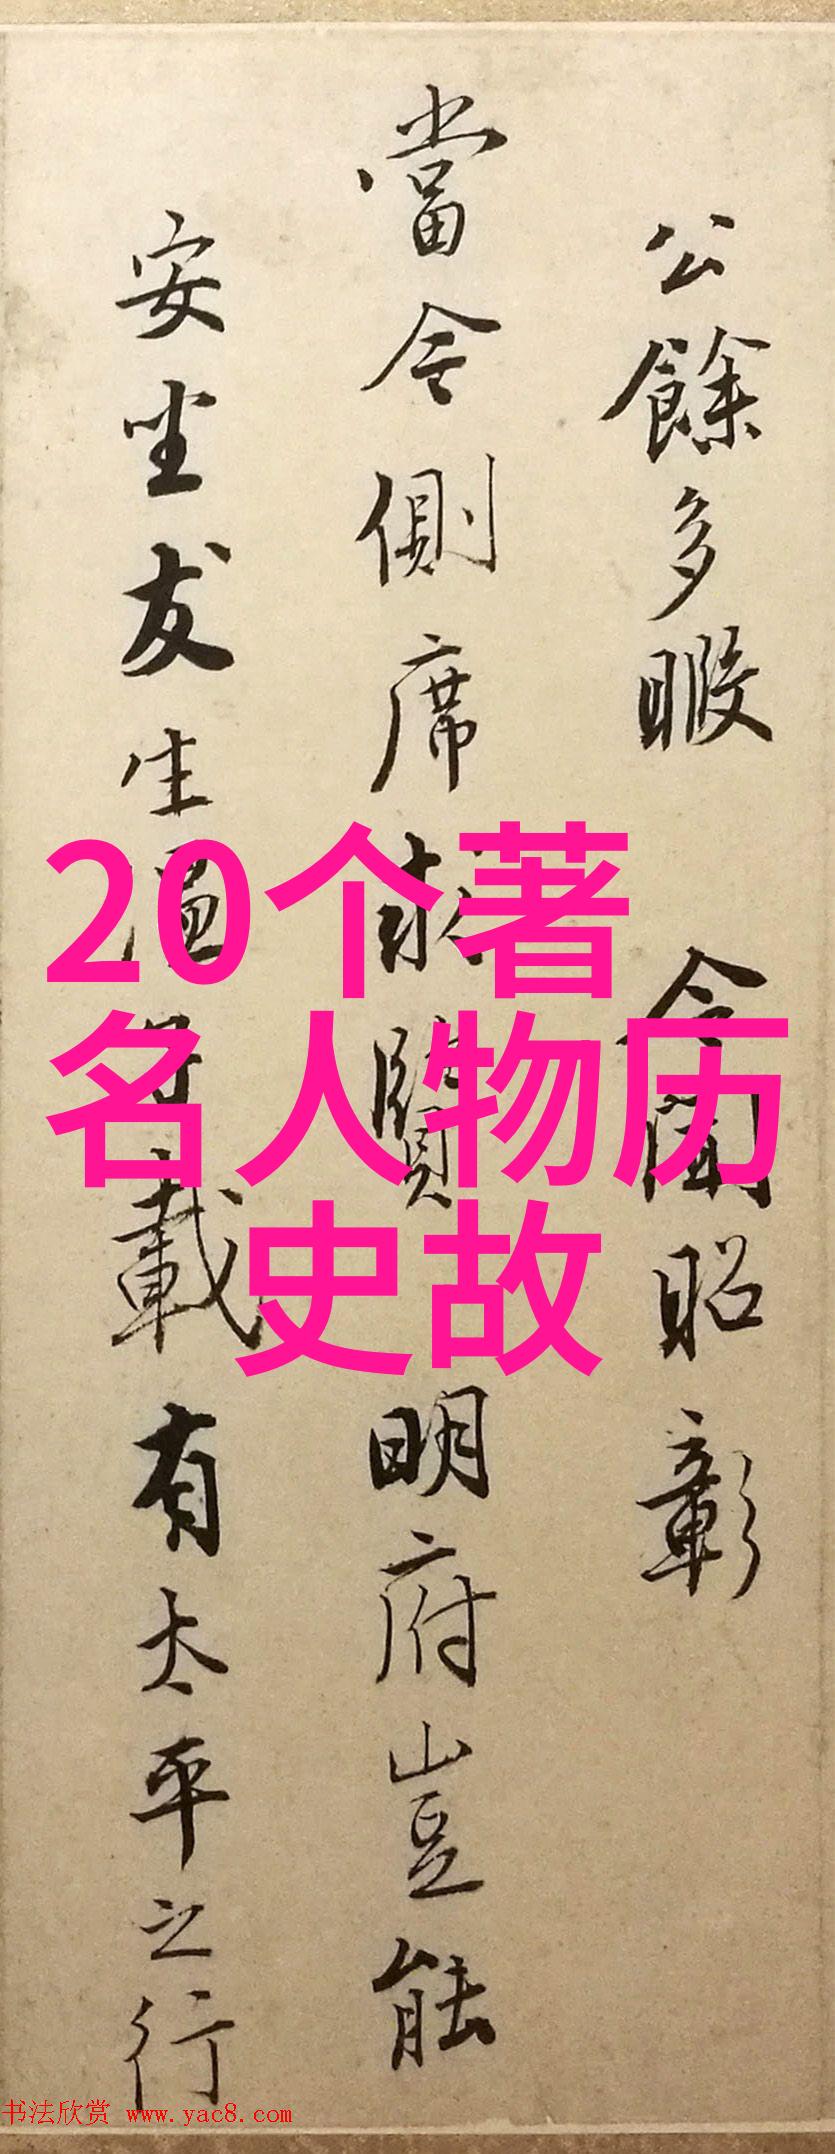 公餘多暇 令聞昭彰
當今側席求賢 明府豈能
安坐友生得載有太平之行
20个著
名人物历
史故
书法欣赏 www.yac8.com